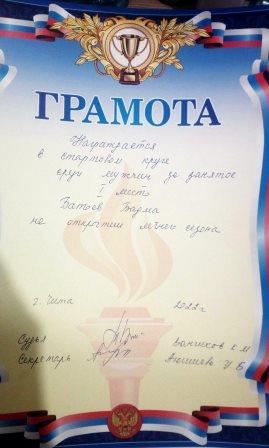 ГРАМОТА
Награждается
в стартовом круге
среди мужчин за занятое
I место
Батоев Барма
на открытии летнего сезона
г. Чита 2022г
Судья Данчиков К М
Секретарь У Б